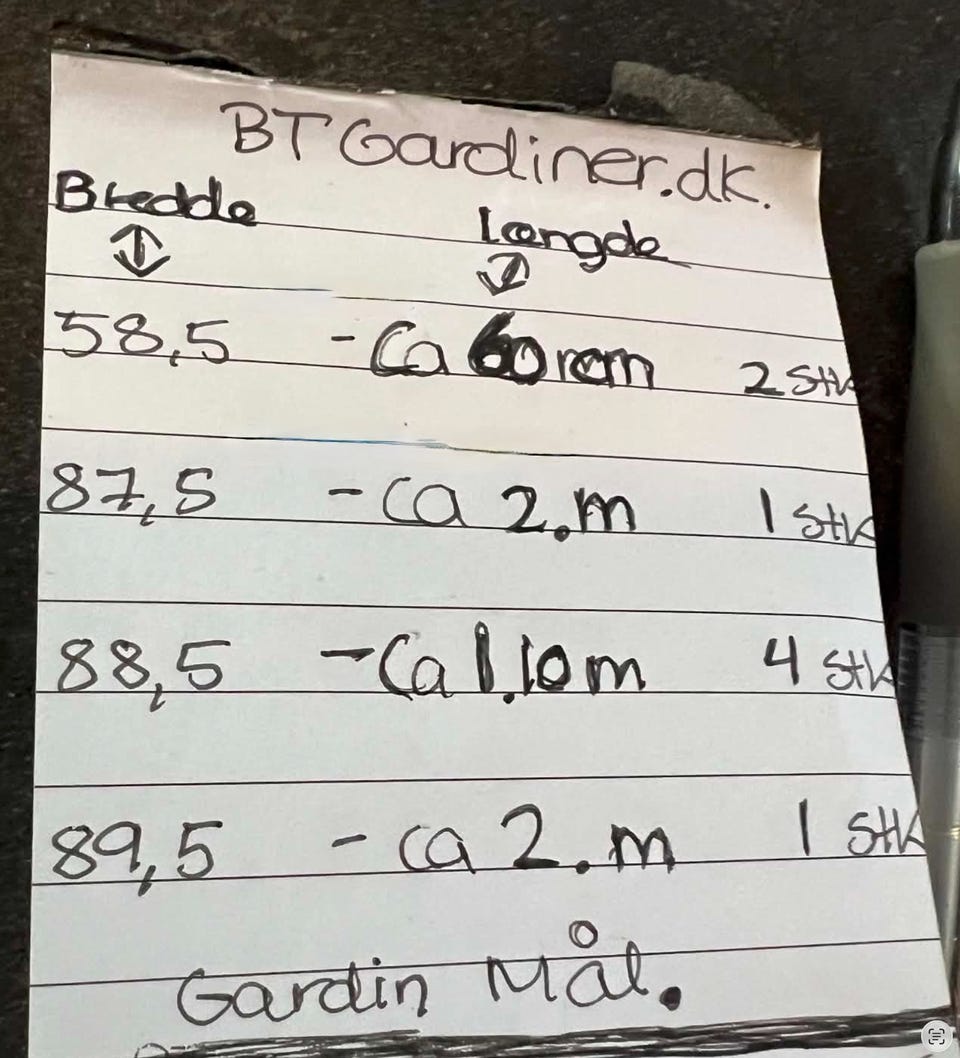 BT Gardiner.dk.
Bredde Længde
58,5 - Ca 60 cm 2 Stk
87,5 - ca 2.m 1 Stk
88,5 - Ca 1.10 m 4 Stk
89,5 - ca 2.m 1 Stk
Gardin Mål.